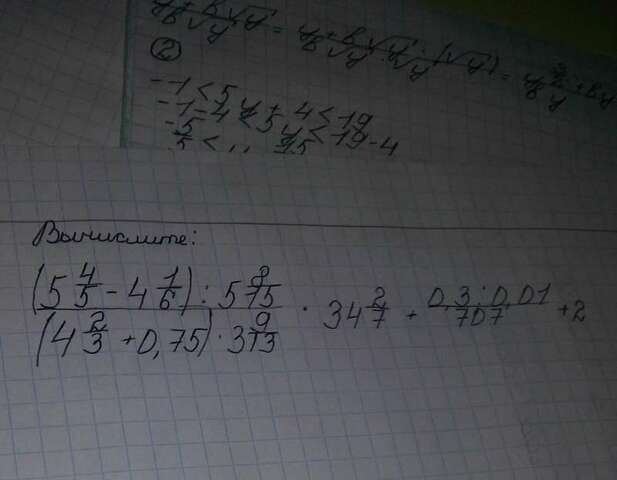 ②
-1 < 5y + 4 < 19
-1-4 < 5y < 19-4
Вычислите:
(5 4/5 - 4 1/6) : 5 8/15 / (4 2/3 + 0,75) · 3 9/13 · 34 2/7 + 0,3 : 0,01 / 707 + 2